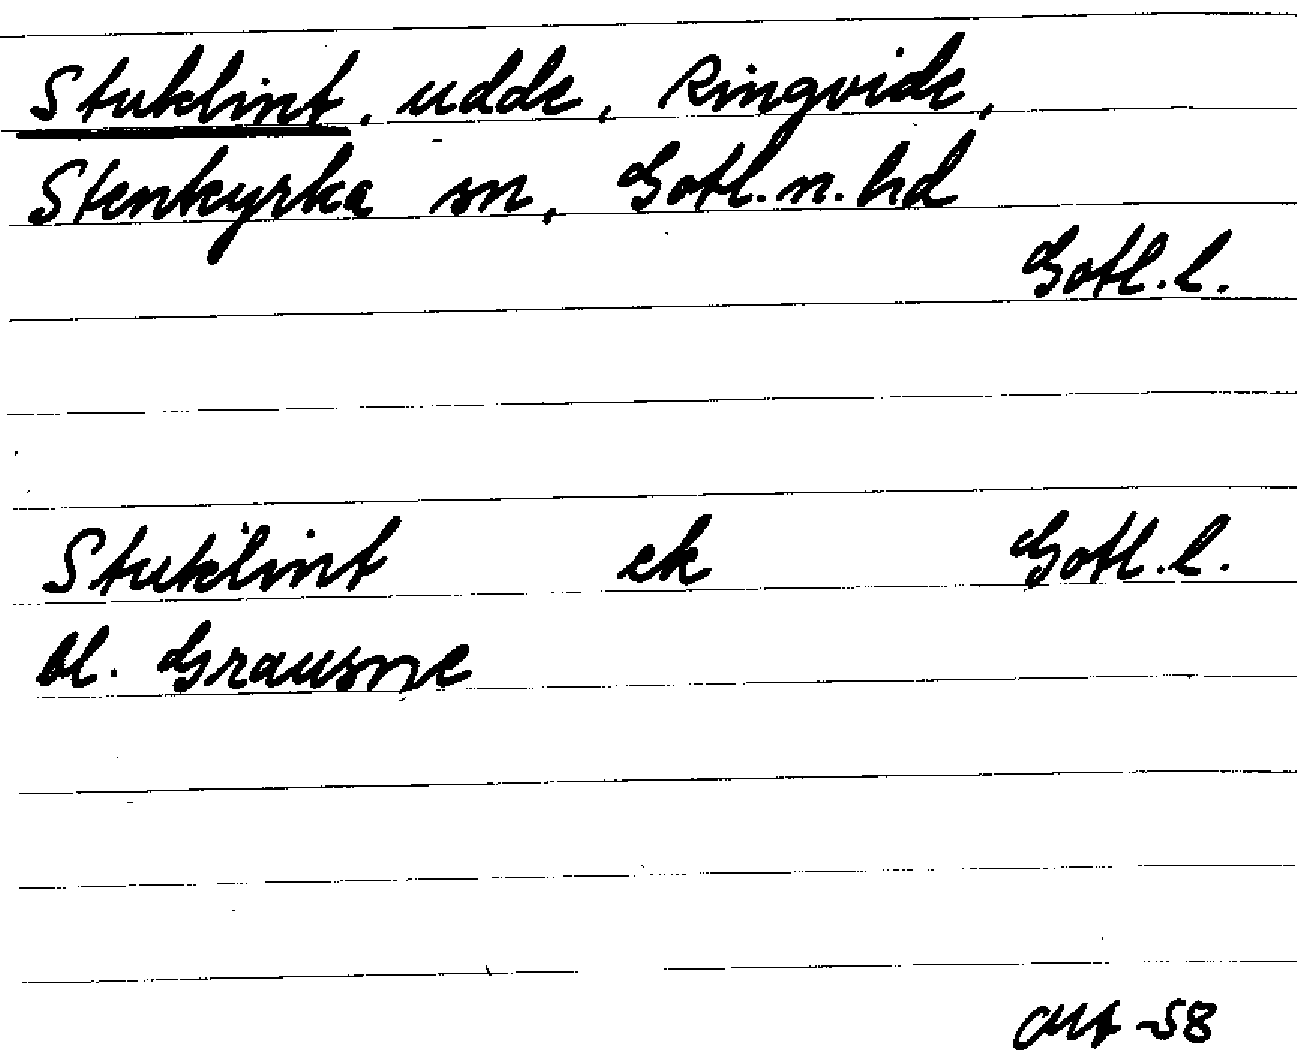 Stuklint, udde, Ringvide,
Stenkyrka sn, Gotl. n. hd
Gotl. l.
Stuklint ek Gotl. l.
bl. Grausne
-58